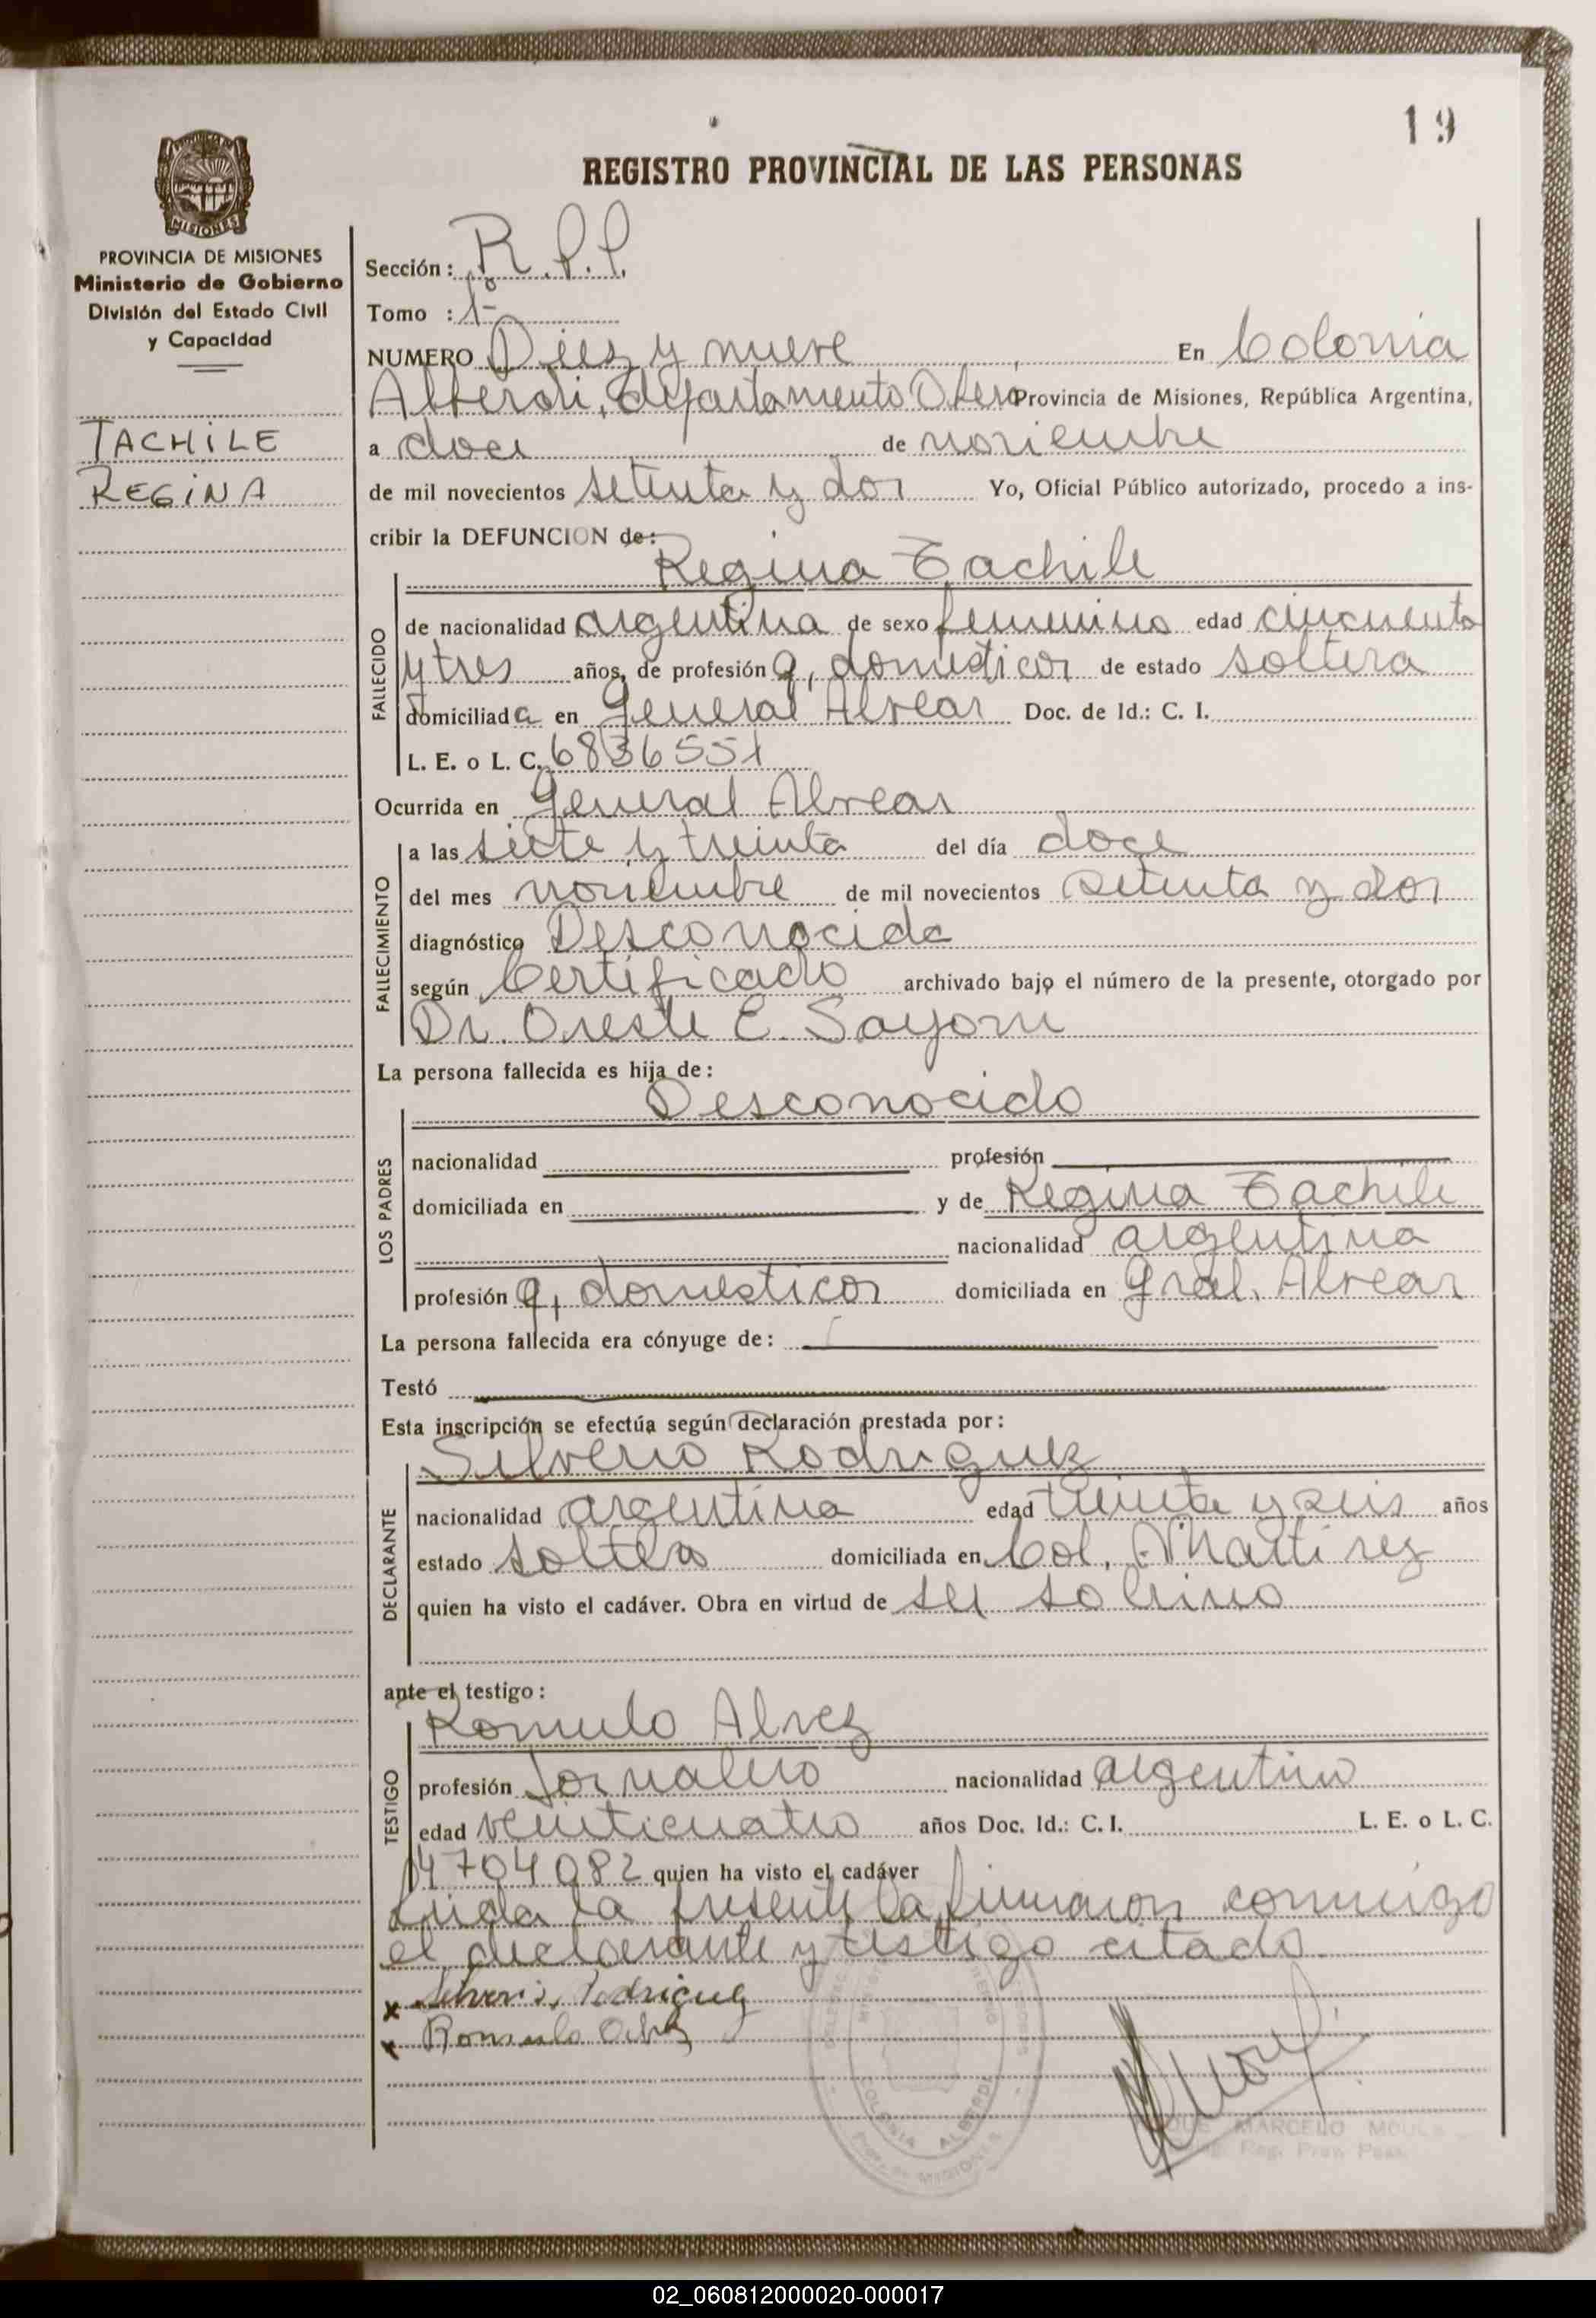 19
REGISTRO PROVINCIAL DE LAS PERSONAS
PROVINCIA DE MISIONES
MISIONES
PROVINCIA DE MISIONES
Ministerio de Gobierno
División del Estado Civil
y Capacidad
TACHILE
REGINA
Sección : R.P.P.
Tomo : 1º
NUMERO Diez y nueve En Colonia
Alberdi, departamento Obera Provincia de Misiones, República Argentina,
a doce de noviembre
de mil novecientos setenta y dos Yo, Oficial Público autorizado, procedo a ins-
cribir la DEFUNCION de:
Regina Tachile
FALLECIDO
de nacionalidad argentina de sexo femenino edad cincuenta
y tres años, de profesión q, domesticos de estado soltera
domiciliada en General Alvear Doc. de Id.: C. I.
L. E. o L. C. 6836551
Ocurrida en General Alvear
FALLECIMIENTO
a las siete y treinta del día doce
del mes noviembre de mil novecientos setenta y dos
diagnóstico Desconocido
según Certificado archivado bajo el número de la presente, otorgado por
Dr. Oreste E.
La persona fallecida es hija de:
Desconocido
LOS PADRES
nacionalidad profesión
domiciliada en y de Regina Tachile
nacionalidad argentina
profesión q, domesticos domiciliada en Gral. Alvear
La persona fallecida era cónyuge de:
Testó
Esta inscripción se efectúa según declaración prestada por:
Silverio Rodriguez
DECLARANTE
nacionalidad argentina edad treinta y seis años
estado soltero domiciliada en Col. Martirez
quien ha visto el cadáver. Obra en virtud de ser sobrino
ante el testigo:
Romulo Alvez
TESTIGO
profesión Jornalero nacionalidad argentino
edad veinticuatro años Doc. Id.: C. I. L. E. o L. C.
4704082 quien ha visto el cadáver
Leida la presente la firmaron conmigo
el declarante y testigo citado
x Silverio Rodriguez
x Romulo
COLONIA ALBERDI
MISIONES
MARCELO
Reg. Prov. Pers.
02_060812000020-000017